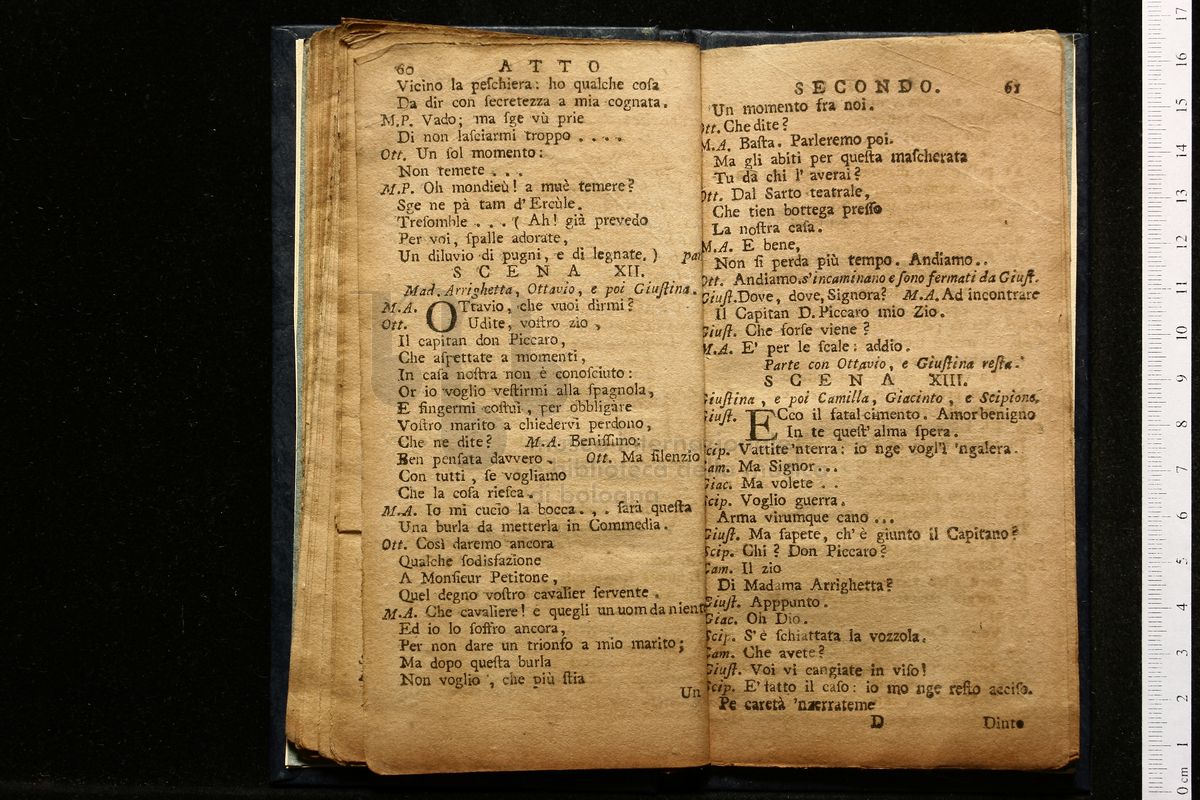 60 ATTO
Vicino la peſchiera: ho qualche coſa
Da dir con ſecretezza a mia cognata.
M.P. Vado; ma ſge vù prie
Di non laſciarmi troppo . . . .
Ott. Un ſol momento:
Non temete . . .
M.P. Oh mondieù! a muè temere?
Sge ne pà tam d'Ercùle.
Treſomble . . . ( Ah! già prevedo
Per voi, ſpalle adorate,
Un diluvio di pugni, e di legnate. ) par
SCENA XII.
Mad. Arrighetta, Ottavio, e poi Giuſtina.
M.A. OTtavio, che vuoi dirmi?
Ott. Udite, voſtro zio,
Il capitan don Piccaro,
Che aſpettate a momenti,
In caſa noſtra non è conoſciuto:
Or io voglio veſtirmi alla ſpagnola,
E fingermi coſtui, per obbligare
Voſtro marito a chiedervi perdono,
Che ne dite? M.A. Beniſſimo:
Ben penſata davvero. Ott. Ma ſilenzio
Con tutti, ſe vogliamo
Che la coſa rieſca.
M.A. Io mi cucio la bocca . , . ſarà queſta
Una burla da metterla in Commedia.
Ott. Così daremo ancora
Qualche ſodisfazione
A Monſieur Petitone,
Quel degno voſtro cavalier ſervente.
M.A. Che cavaliere! e quegli un uom da niente
Ed io lo ſoffro ancora,
Per non dare un trionfo a mio marito;
Ma dopo queſta burla
Non voglio, che più ſtia
Un
SECONDO. 61
Un momento fra noi.
Ott. Che dite?
M.A. Baſta. Parleremo poi.
Ma gli abiti per queſta maſcherata
Tu da chi l'averai?
Ott. Dal Sarto teatrale,
Che tien bottega preſſo
La noſtra caſa.
M.A. E bene,
Non ſi perda più tempo. Andiamo..
Ott. Andiamo. s'incaminano e ſono fermati da Giuſt.
Giuſt. Dove, dove, Signora? M.A. Ad incontrare
Il Capitan D. Piccaro mio Zio.
Giuſt. Che forſe viene?
M.A. E' per le ſcale: addio.
Parte con Ottavio, e Giuſtina reſta.
SCENA XIII.
Giuſtina, e poi Camilla, Giacinto, e Scipione.
Giuſt. ECco il fatal cimento. Amor benigno
In te queſt'alma ſpera.
Scip. Vattite 'nterra: io nge vogl'i 'ngalera.
Cam. Ma Signor...
Giac. Ma volete . .
Scip. Voglio guerra.
Arma virumque cano ...
Giuſt. Ma ſapete, ch'è giunto il Capitano?
Scip. Chi? Don Piccaro?
Cam. Il zio
Di Madama Arrighetta?
Giuſt. Apppunto.
Giac. Oh Dio.
Scip. S'è ſchiattata la vozzola.
Cam. Che avete?
Giuſt. Voi vi cangiate in viſo!
Scip. E' fatto il caſo: io mo nge reſto acciſo.
Pe caretà 'nzerrateme
D Dinto